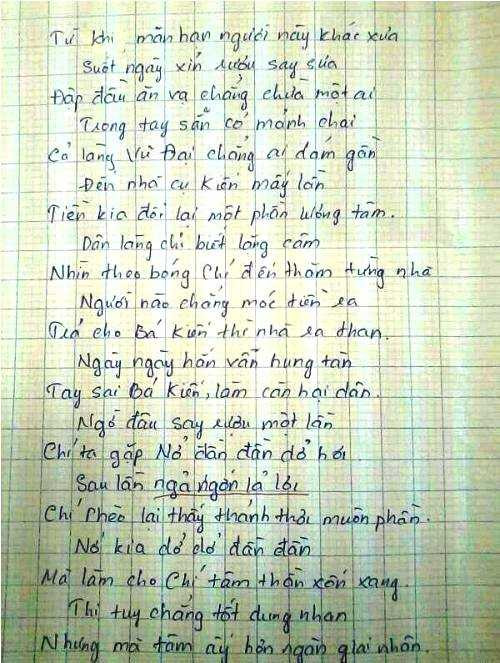 Từ khi mãn hạn người này khác xưa
Suốt ngày xin rượu say sưa
Đập đầu ăn vạ chẳng chừa một ai
Trong tay sẵn có mảnh chai
Cả làng Vũ Đại chẳng ai dám gần
Đến nhà cụ Kiến mấy lần
Tiền kia đổi lại một phần lương tâm.
Dân làng chỉ biết lặng câm
Nhìn theo bóng Chí đến thăm từng nhà
Người nào chẳng móc tiền ra
Trả cho Bá Kiến thì nhà ra than.
Ngày ngày hắn vẫn hung tàn
Tay sai Bá Kiến, làm càn hại dân.
Ngờ đâu say rượu một lần
Chí ta gặp Nở đần đần dở hơi
Sau lần ngả ngớn lả lơi
Chí Phèo lại thấy thảnh thơi muôn phần.
Nở kia dở dở đần đần
Mà làm cho Chí tâm thần xốn xang.
Thị tuy chẳng tốt dung nhan
Nhưng mà tâm ấy hơn ngàn giai nhân.